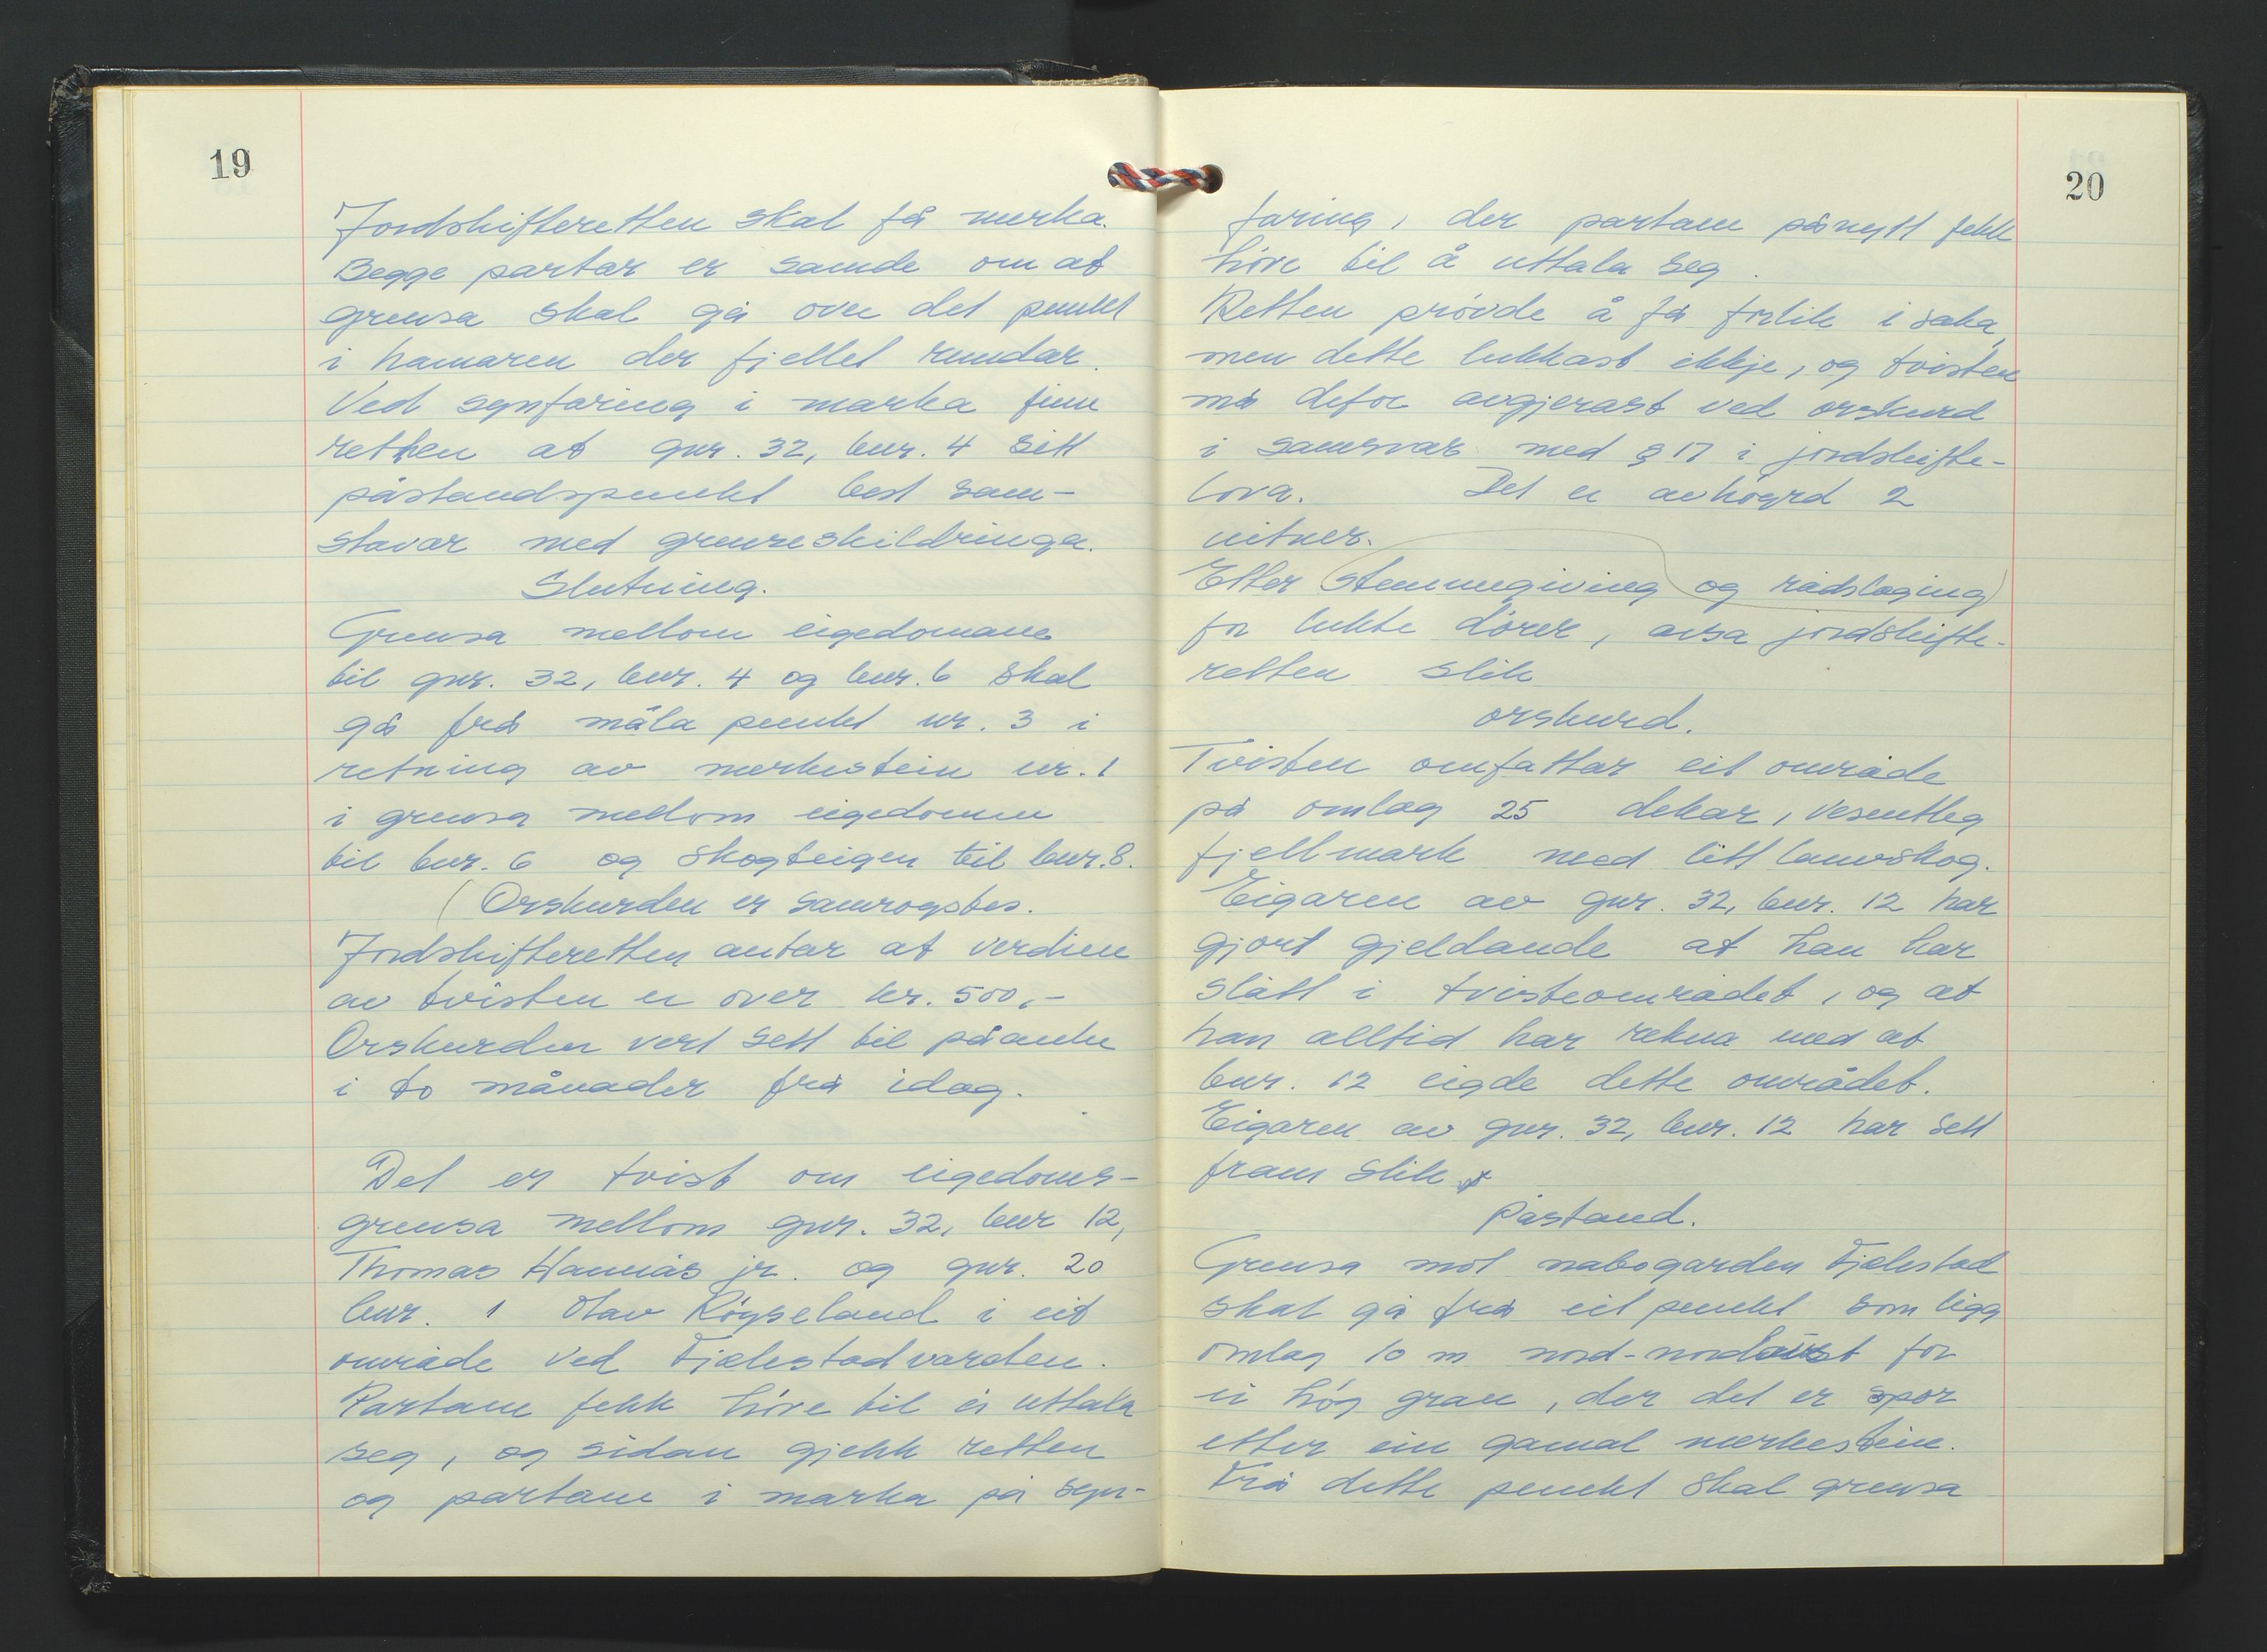 19
Jordskifteretten skal få merka.
Begge partar er samde om at
grensa skal gå over det punkt
i hamaren der fjellet rundar.
Ved synfaring i marka finn
retten at gnr. 32, bnr. 4 sitt
påstandspunkt best sam-
stavar med grenseskildringa.
Slutning.
Grensa mellom eigedomane
til gnr. 32, bnr. 4 og bnr. 6 skal
gå frå måla punkt nr. 3 i
retning av merkestein nr. 1
i grensa mellom eigedomen
til bnr. 6 og skogteigen til bnr. 8.
(Orskurden er samrøystes.
Jordskifteretten antar at verdien
av tvisten er over kr. 500,-
Orskurden vert sett til påanke
i to månader frå idag.
Det er tvist om eigedoms-
grensa mellom gnr. 32, bnr 12,
Thomas Hannås jr. og gnr. 20
bnr. 1 Olav Røyseland i eit
område ved Fjælestadvarden.
Partane fekk høve til å uttala
seg, og sidan gjekk retten
og partane i marka på syn-
20
faring, der partane pånytt fekk
høve til å uttala seg.
Retten prøvde å få forlik i saka,
men dette lukkast ikkje, og tvisten
må defor avgjerast ved orskurd
i samsvar med § 17 i jordskifte-
lova. Det er avhøyrd 2
vitner.
Etter (stemmegiving og rådslaging)
for lukte dører, avsa jordskifte-
retten slik
orskurd.
Tvisten omfattar eit område
på omlag 25 dekar, vesentleg
fjellmark med litt lauvskog.
Eigaren av gnr. 32, bnr. 12 har
gjort gjeldande at han har
slått i tvisteområdet, og at
han alltid har rekna med at
bnr. 12 eigde dette området.
Eigaren av gnr. 32, bnr. 12 har sett
fram slik
påstand.
Grensa mot nabogarden Fjælestad
skal gå frå eit punkt som ligg
omlag 10 m nord-nordaust for
ei høg gran, der det er spor
etter ein gamal merkestein.
Frå dette punkt skal grensa